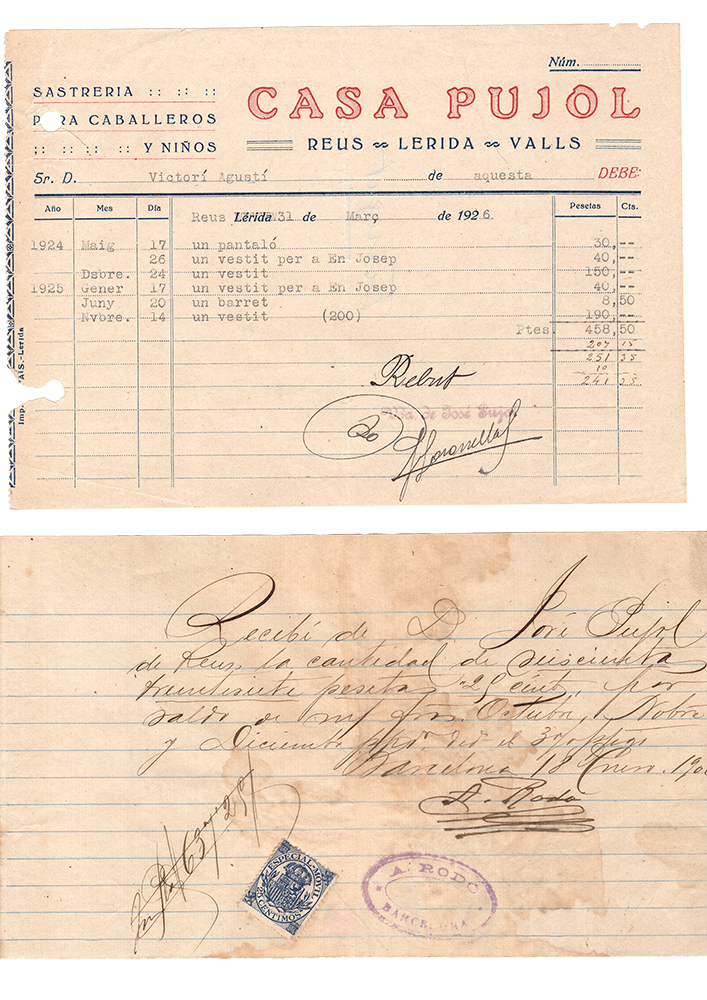 Núm.
SASTRERIA :: :: ::
PARA CABALLEROS
:: :: :: :: Y NIÑOS
CASA PUJOL
REUS ∾ LERIDA ∾ VALLS
Sr. D. Victorí Agustí de aquesta DEBE:
Año Mes Día Reus Lérida 31 de Març de 1926 Pesetas Cts.
1924 Maig 17 un pantaló 30,--
26 un vestit per a En Josep 40,--
Dsbre. 24 un vestit 150,--
1925 Gener 17 un vestit per a En Josep 40,--
Juny 20 un barret 8,50
Nvbre. 14 un vestit (200) 190,--
Ptes. 458,50
207 15
251 35
10
241 35
Rebut
Vda. de José Pujol
Imp. PAÍS.-Lerida
Recibí de D José Pujol
de Reus la cantidad de
pesetas 25 cent, por
saldo de mi Octubre, Nobre
y Diciembre
Barcelona 18 Enero
A. Rodó
ESPECIAL-MOVIL
CENTIMOS
A. RODÓ
BARCELONA